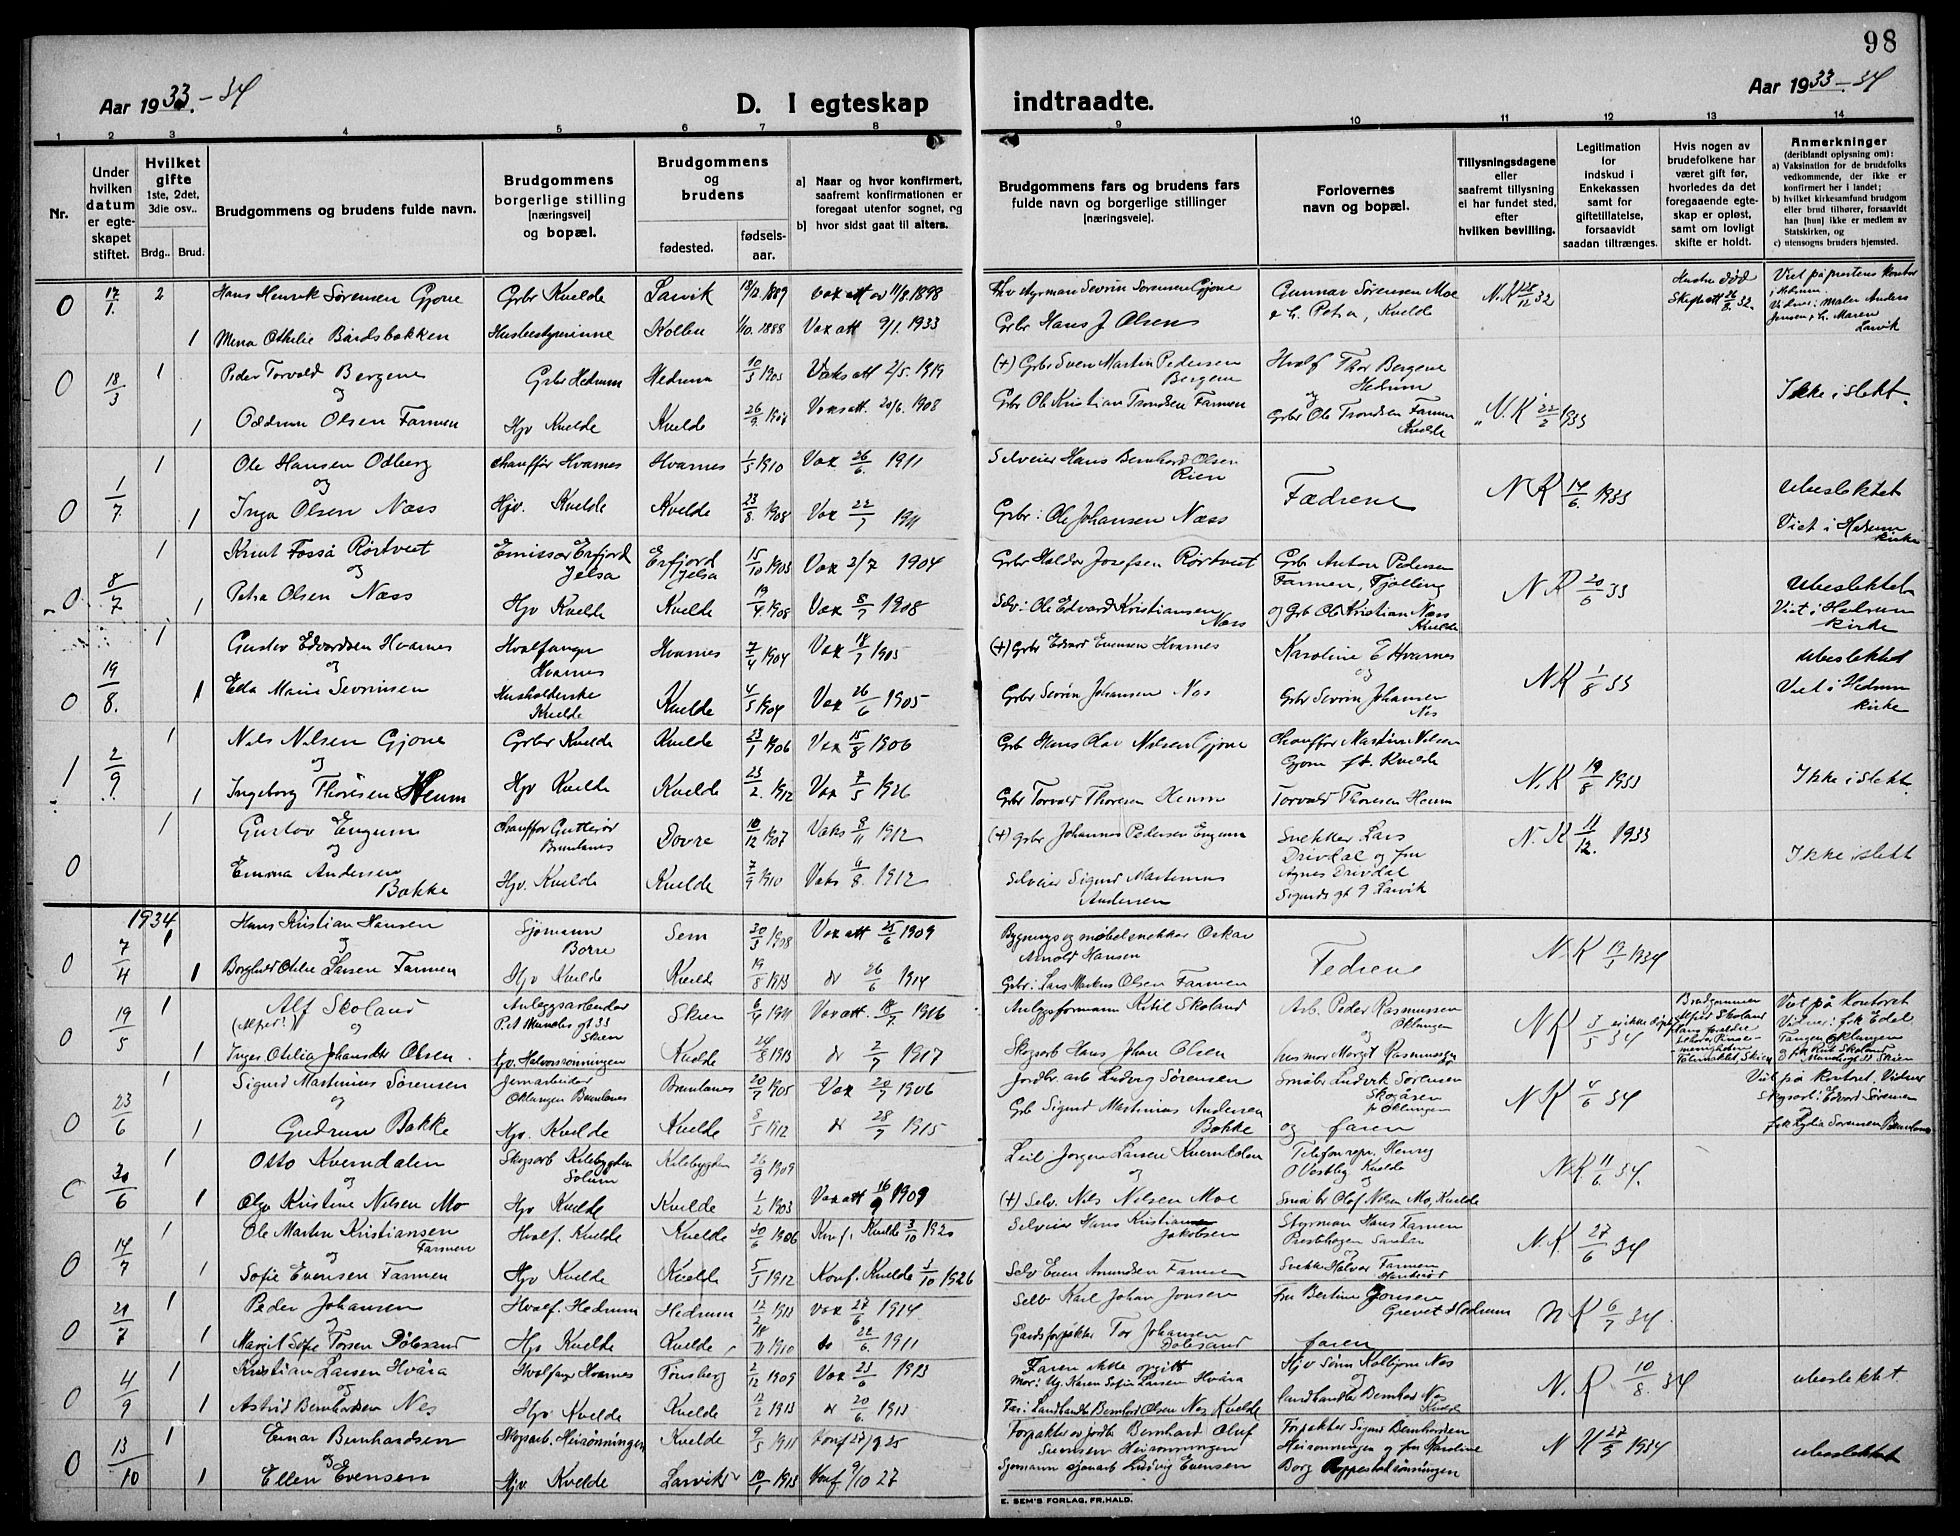 98
Aar 1933.-34
D. I egteskap indtraadte.
Aar 1933-34
1 2 3 4 5 6 7 8 9 10 11 12 13 14
Nr.
Under hvilken datum er egteskapet stiftet.
Hvilket gifte 1ste, 2det, 3die osv.
Brdg. Brud.
Brudgommens og brudens fulde navn.
Brudgommens borgerlige stilling [næringsvei] og bopæl.
Brudgommens og brudens
fødested. fødsels-aar.
a) Naar og hvor konfirmert, saafremt konfirmationen er foregaat utenfor sognet, og
b) hvor sidst gaat til alters.
Brudgommens fars og brudens fars fulde navn og borgerlige stillinger [næringsveie].
Forlovernes navn og bopæl.
Tillysningsdagene eller saafremt tillysning ei har fundet sted, efter hvilken bevilling.
Legitimation for indskud i Enkekassen samt for giftetillatelse, forsaavidt saadan tiltrænges.
Hvis nogen av brudefolkene har været gift før, hvorledes da det foregaaende egteskap er opløst, samt om lovligt skifte er holdt.
Anmerkninger (deriblandt oplysning om): a) Vaksination for de brudefolks vedkommende, der ikke er konfirmert her i landet; b) hvilket kirkesamfund brudgom eller brud tilhører, forsaavidt han [hun] ikke er medlem av Statskirken, og c) utensogns bruders hjemsted.
0 17/1. 2 Hans Henrik Sørensen Gjone Grbr Kvelde Larvik 1889 Vax att av 11/8. 1898 Styrman Sevrin Sørensen Gjone Gunnar Sørensen Moe N.K 28/12 32 Hustru død Viet på prestens kontor
i Hedrum.
1 Mina Othilie Bårdsbakken Husbestyrerinne 1/10. 1888 Vax att 9/1. 1933 Grbr Hans J Olsen Petra, Kvelde Skifteatt 26/8. 32. Vidner: Maler Anders Jensen Maren Larvik
0 18/3 1 Peder Torvald Bergene Grbr Hedrum Hedrum 10/3 1905 Vaks att 2/5. 1919 (+) Grbr Sven Martin Pedersen Bergene Hvalf Thor Bergene Hedrum
og og
1 Oddrun Olsen Farmen Hjv Kvelde Kvelde 26/9. Vaks att. 20/6. 1908 Grbr Ole Kristian Trondsen Farmen Grbr Ole Trondsen Farmen Kvelde N.K 22/2 1933 Ikke i slekt.
1 Ole Hansen Odberg Chauffør Hvarnes Hvarnes 1/5 1910 Vax 26/6. 1911 Selveier Hans Bernhard Olsen Rien
0 1/7 og Fædrene N K 14/6. 1933 Ubeslektet
1 Inga Olsen Næss Hjv. Kvelde Kvelde 23/8. 1908 Vax 22/7 1911 Grbr: Ole Johansen Næss Viet i Hedrum kirke
1 Knut Fossa Rørtveit Emissær Erfjord Jelsa Erfjord Jelsa 15/10 1903 Vax 2/7 1904 Grbr Halder Josefsen Rørtveit Grb Anton Pedersen Farmen, Tjølling N K 20/6 33 Ubeslektet
0 8/7 og
1 Petra Olsen Næss Hjv Kvelde Kvelde 19/4. 1908 Vax 8/7 1908 Selv: Ole Edvard Kristiansen Næss og Grb Ole Kristian Næss Kvelde Viet i Hedrum kirke
1 Gustav Edvardsen Hvarnes Hvalfanger Hvarnes Hvarnes 7/4 1904 Vax 18/7 1905 (+) Grbr Edvard Evensen Hvarnes Karoline E Hvarnes N.K 1/8 33 Ubeslektet
0 19/8. og og
1 Eda Marie Sevrinsen Husholderske Kvelde Kvelde 4/5 1904 Vax 26/6 1905 Grbr Sevrin Johansen Næs Grbr Sevrin Johansen Nes Viet i Hedrum kirke
1 Nils Nilsen Gjone Grbr Kvelde Kvelde 23/1 1906 Vax 15/8 1906 Grb Hans Olav Nilsen Gjone Chauffør Martin Nilsen Gjone Kvelde
1 2/9 og N.K 19/8 1933 Ikke i slekt.
1 Ingeborg Thoresen Heum Hjv Kvelde Kvelde 23/2. 1912 Vax 7/5 1926 Grbr Torvald Thoresen Heum Torvald Thoresen Heum
1 Gustav Engum Chauffør Brunlanes Dovre 10/12 1907 Vaks 8/11 1912 (+) Grbr Johannes Pedersen Engum Snekker Lars Drivdal og fru N. K 11/12. 1933
0 og Agnes Drivdal Ikke i slekt
Emma Andersen Bakke Hjv. Kvelde Kvelde 7/9 1910 Vaks 6/8. 1912 Selveier Sigurd Martinius Andersen Sigurds gt 9 Larvik
1934
7/4 1 Hans Kristian Hansen Sjømann Borre Sem 20/3 1908 Vax att 25/6 1909 Bygnings og møbelsnekker Oskar Arnold Hansen N. K 19/3 1934
0 og Fedrene
1 Borghild Otilie Larsen Farmen Hjv Kvelde Kvelde 19/8 1913 do 26/6 1914 Grbr: Lars Markus Olsen Farmen
0 19/5 1 Alf Skoland Anlegsarbeider Skien Skien 6/4 1911 Vax att. 18/7. 1916 Anlegsformann Kitil Skoland Arb. Peder Rasmussen Oklungen N K 3/5 34 Brudgommen Alfred Skoland Viet på Kontoret
(Alfred!) og Vidner: frk Edel Tangen Oklungen
1 Inger Otilia Johansdtr Olsen. Hjv. Halvorsrønningen Kvelde 24/8 1913 do 2/7 1917 Skogsarb Hans Johan Olsen husmor Margit Rasmussen frk Rut Skoland Skien
1 Sigurd Martinius Sørensen Jernarbeider Oklungen Brunlanes Brunlanes 20/7 1905 Vax 20/7 1906 Jordbr. arb Ludvig Sørensen Småbr Ludvik Sørensen Skogåsen pr Oklungen N K 4/6 34 Viet på kontoret. Vidner
0 23/6 og Skogsarb: Edvard Sørensen
1 Gudrun Bakke Hjv. Kvelde Kvelde 8/5 1912 do 28/7 1915 Grb Sigurd Martinius Andersen Bakke og faren frk Lydia Sørensen Brunlanes
1 Otto Kverndalen Skogsarb Kilebygden Solum Kilebygden 26/9 1909 Leil Jørgen Larsen Kverndalen Telefonrepr. Henry O Vestby Kvelde N.K 11/6. 34.
30/6 og og
1 Olga Kristine Nilsen Mo Hjv Kvelde Kvelde 1/2 1903 Vax att 16/9 1909 (+) Selv. Nils Nilsen Moe Småbr Olaf Nilsen Mo, Kvelde
1 Ole Martin Kristiansen Farmen Hvalf. Kvelde Kvelde 20/6 1906 Knf. Kvelde 3/10 192 Selveier Hans Kristiansen Jakobsen Styrman Hans Farmen N.K. 27/6 34
0 14/7 og
1 Sofie Evensen Farmen Hjv Kvelde Kvelde 5/5 1912 Konf. Kvelde 3/10 1926 Selv Even Amundsen Farmen Snekker Halvor Farmen
21/7 1 Peder Johansen Hvalf. Hedrum Hedrum 12/2 1913 Vax 27/6 1914 Selv Karl Johan Jonsen fru Bertine Jonsen Grevet Hedrum N K 6/7 34.
0 og
1 Margit Sofie Torsen Dølesand Hjv Kvelde Kvelde 18/11 1910 do 22/6. 1911 Gårdsforpakter Tor Johansen Dølesand faren
1 Kristian Larsen Hvåra Hvalfanger Hvarnes Tønsberg 2/12 1909 Vax 23/6 1913 Faren ikke opgitt Hjv Sønn Kolbjørn Næs
0 4/9 og Mor: Ug. Karen Sofie Larsen Hvåra og N. K 10/8. 34 ubeslektet.
1 Astrid Bernhardsen Nes Hjv Kvelde Kvelde 12/2 1913 do 20/6. 1913 Far: Landhandler Bernhard Olsen Nes Kvelde Landhandler Bernhard Nes Kvelde
13/10 1 Einar Bernhardsen Skogsarb. Heirønningen Kvelde 9/5 1911 Konf 27/9 25 Forpakter av jordbr Bernhard Oluf Svensen Heirønningen Forpakter Sigurd Bernhardsen Heirønningen og fru Karoline N K 27/9 1934 ubeslektet
0 og
1 Ellen Evensen Hjv Kvelde Larvik 10/1 1913 Konf 9/10 27 Sjømann Ludvig Evensen Borg
E. SEM'S FORLAG, FR.HALD.